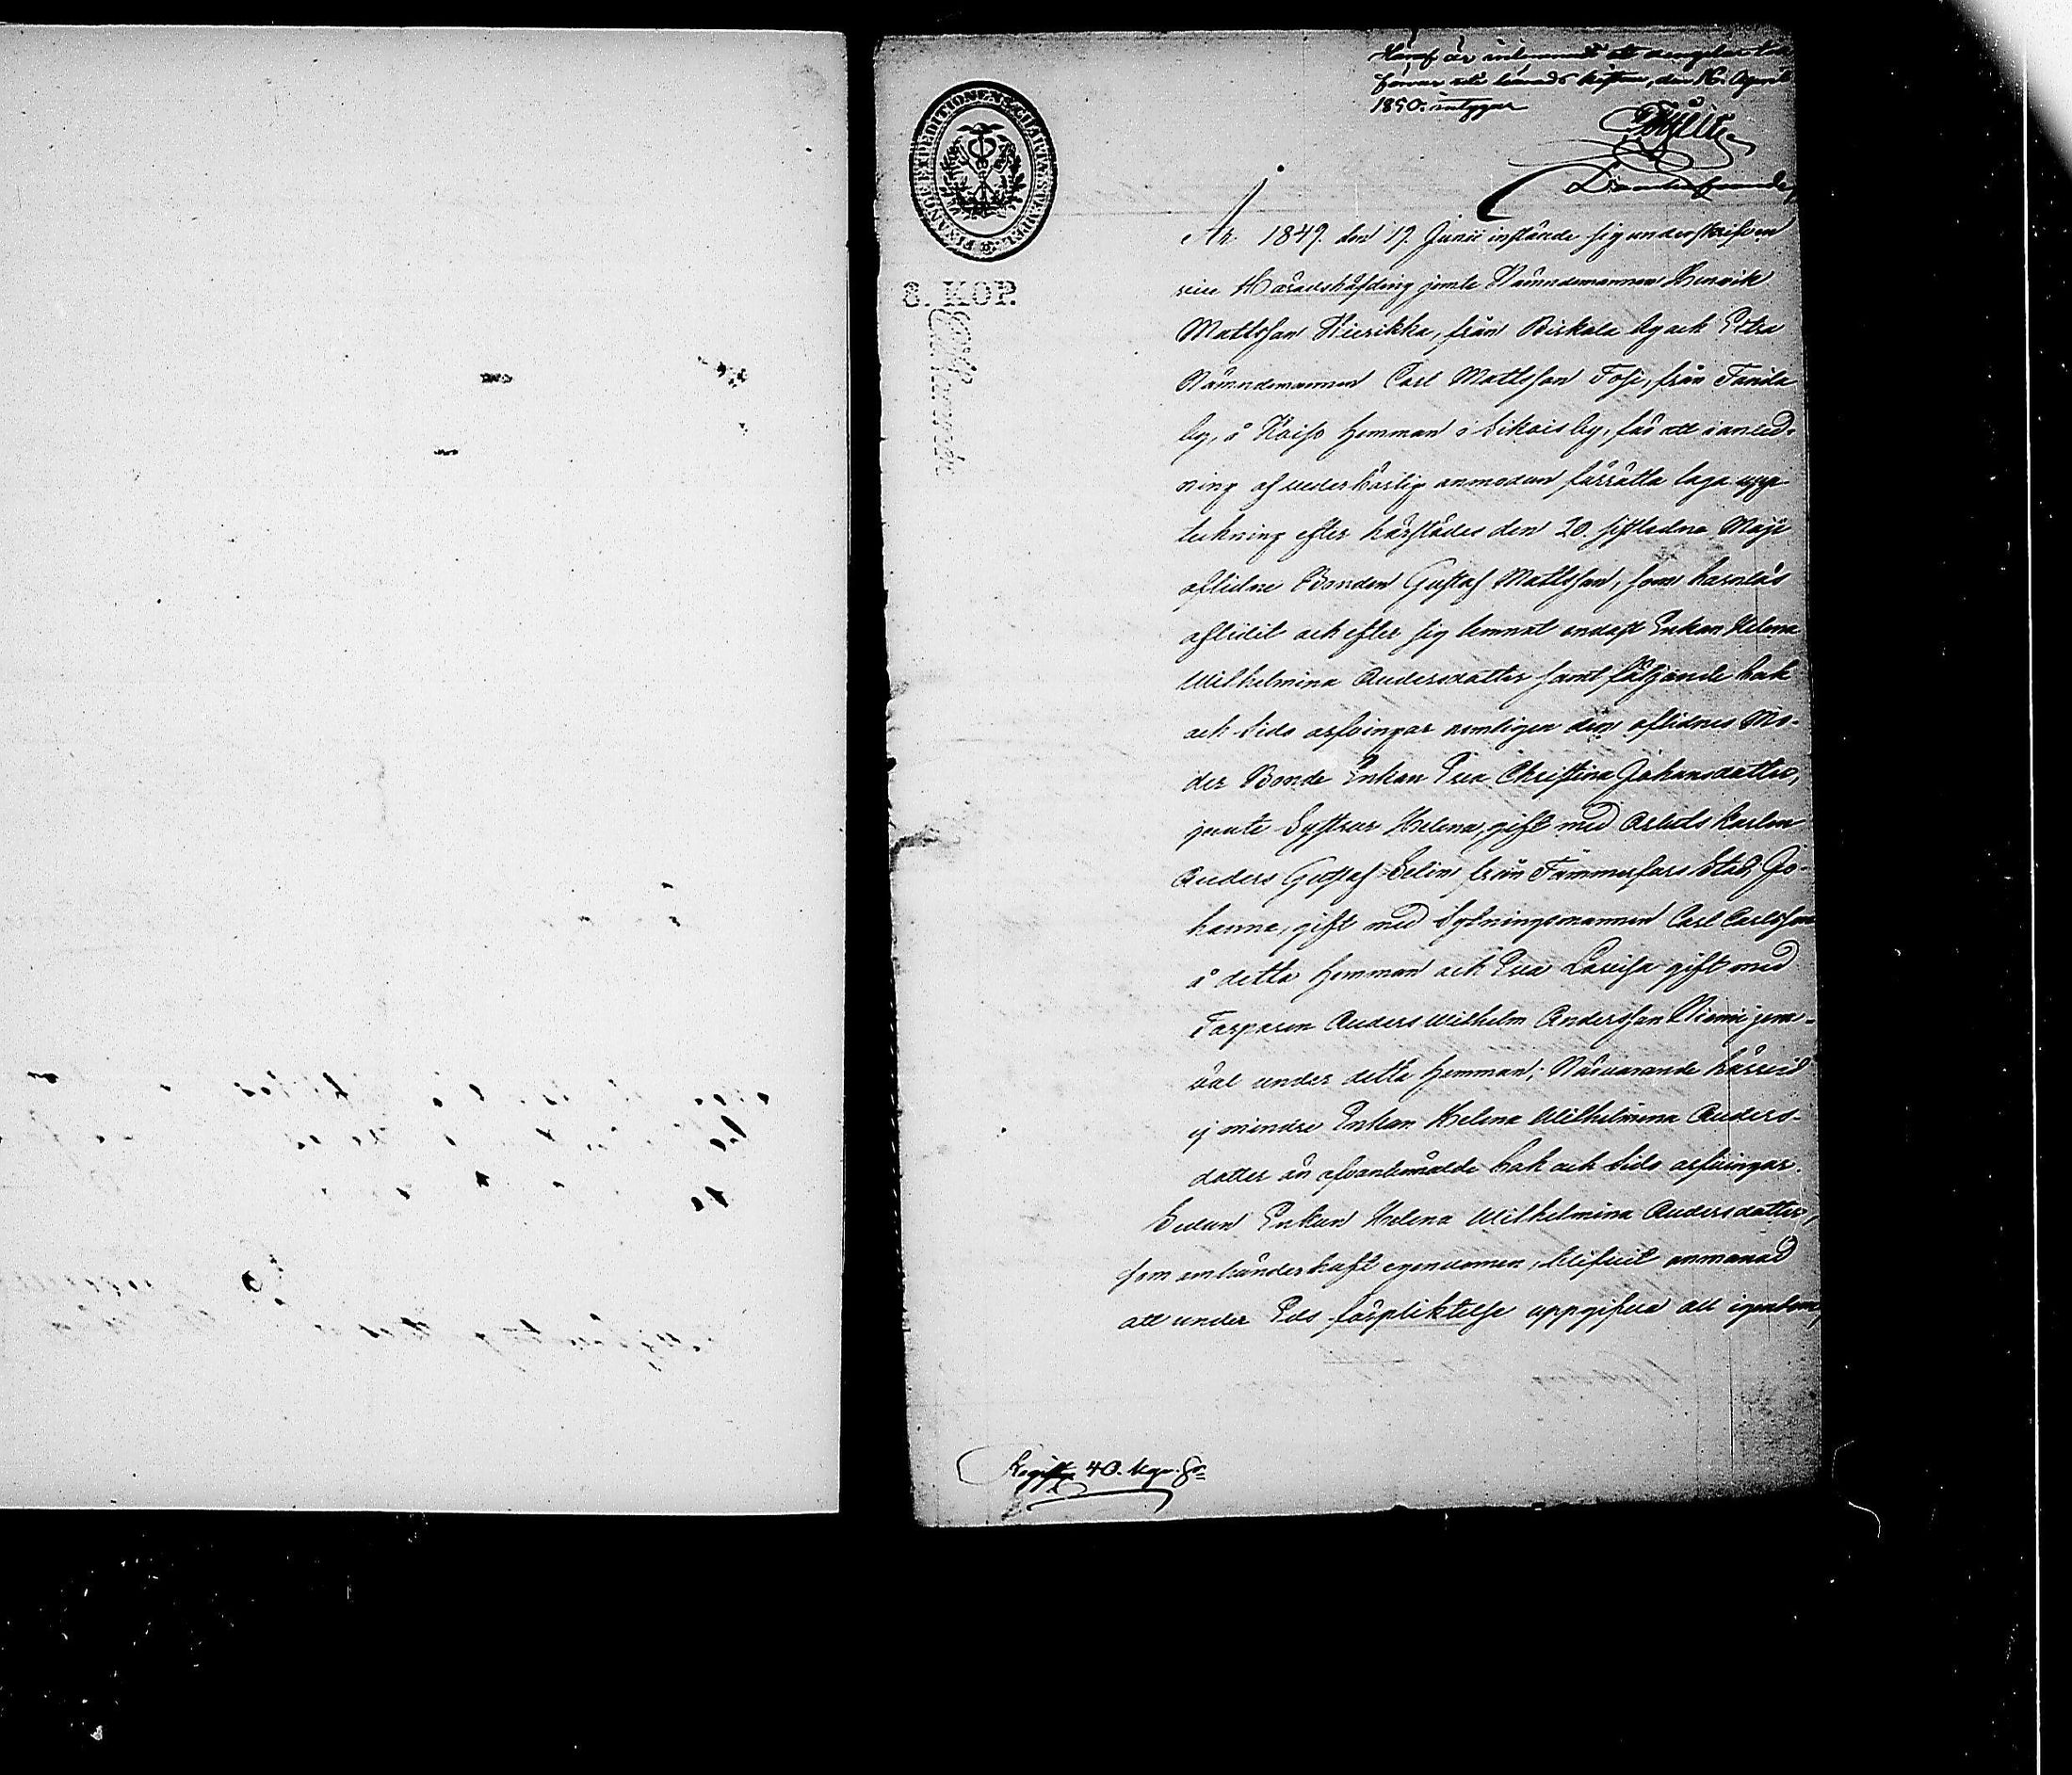 1850. intygar
FINANCE EXPEDITIONENS CHARTÆ SIGILL
8. KOP.
År 1849. den 19. Junii instälde sig undertecknad
vice Häradshöfding jemte Nämndemannen Henrik
Mattsson Kierikka, från Birkala by och Extra
Nämndemannen Carl Mattsson Tosi, från Tanila
by, å Koiso hemman i Sikois by, för att i anled-
ning af vederbörlig anmodan förrätta laga upp-
teckning efter härstädes den 20. sistledne Maji
aflidne Bonden Gustaf Mattsson, som barnlös
aflidit och efter sig lemnat endast Enkan Helena
Wilhelmina Andersdotter samt följande bak
och sido arfvingar nemligen den aflidnes Mo-
der Bonde Enkan Eva Christina Johansdotter,
jemte Systrar Helena, gift med Arbets karlen
Anders Gustaf Selin från Tammerfors Stad, Jo-
hanna, gift med Sytningsmannen Carl Carlsson
å detta hemman och Eva Lovisa gift med
Torparen Anders Wilhelm Andersson Niemi jem-
väl under detta hemman; Närvarande härvid
ej mindre Enkan Helena Wilhelmina Anders-
dotter än ofvanbemälde bak och sido arfvingar.
Sedan Enkan Helena Wilhelmina Andersdotter,
som om händerhaft egendomen, blifvit anmanad
att under Eds förpliktelse uppgifva all egendom,
40.